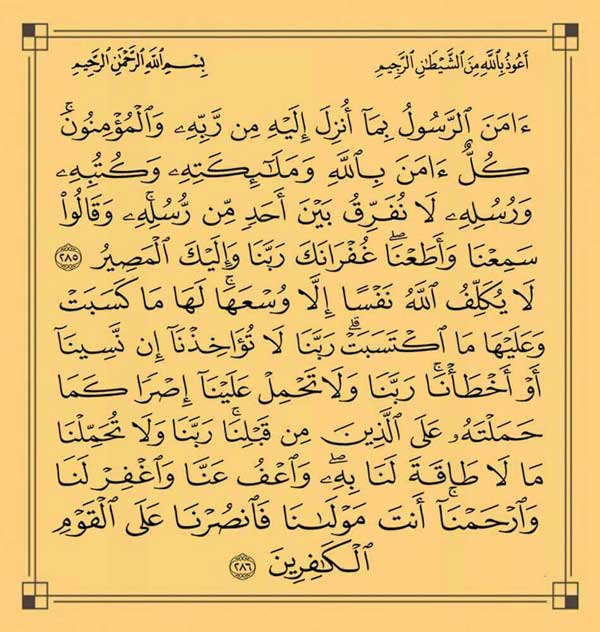 أَعُوذُ بِاللَّهِ مِنَ الشَّيْطَانِ الرَّجِيمِ
بِسْمِ اللَّهِ الرَّحْمَٰنِ الرَّحِيمِ
ءَامَنَ ٱلرَّسُولُ بِمَآ أُنزِلَ إِلَيْهِ مِن رَّبِّهِۦ وَٱلْمُؤْمِنُونَۚ
كُلٌّ ءَامَنَ بِٱللَّهِ وَمَلَـٰٓئِكَتِهِۦ وَكُتُبِهِۦ
وَرُسُلِهِۦ لَا نُفَرِّقُ بَيْنَ أَحَدٍ مِّن رُّسُلِهِۦۚ وَقَالُوا۟
سَمِعْنَا وَأَطَعْنَاۖ غُفْرَانَكَ رَبَّنَا وَإِلَيْكَ ٱلْمَصِيرُ ٢٨٥
لَا يُكَلِّفُ ٱللَّهُ نَفْسًا إِلَّا وُسْعَهَاۚ لَهَا مَا كَسَبَتْ
وَعَلَيْهَا مَا ٱكْتَسَبَتْۗ رَبَّنَا لَا تُؤَاخِذْنَآ إِن نَّسِينَآ
أَوْ أَخْطَأْنَاۚ رَبَّنَا وَلَا تَحْمِلْ عَلَيْنَآ إِصْرًا كَمَا
حَمَلْتَهُۥ عَلَى ٱلَّذِينَ مِن قَبْلِنَاۚ رَبَّنَا وَلَا تُحَمِّلْنَا
مَا لَا طَاقَةَ لَنَا بِهِۦۖ وَٱعْفُ عَنَّا وَٱغْفِرْ لَنَا
وَٱرْحَمْنَآۚ أَنتَ مَوْلَىٰنَا فَٱنصُرْنَا عَلَى ٱلْقَوْمِ
ٱلْكَـٰفِرِينَ ٢٨٦